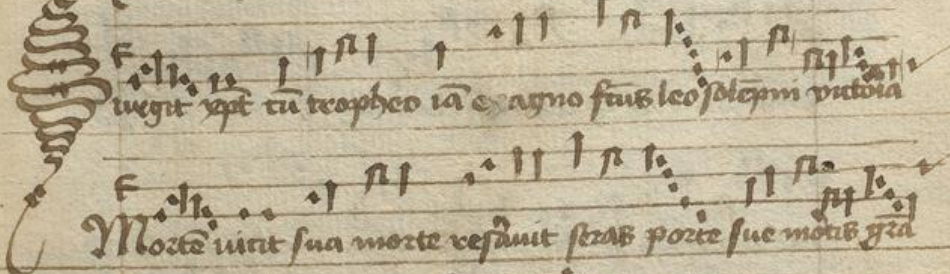 urgit xp̄c cū tropheo iā ex agno fc̄us leo solēpni victoīa
Mortē vicit sua morte resāuit seras porte sue mōtis grā